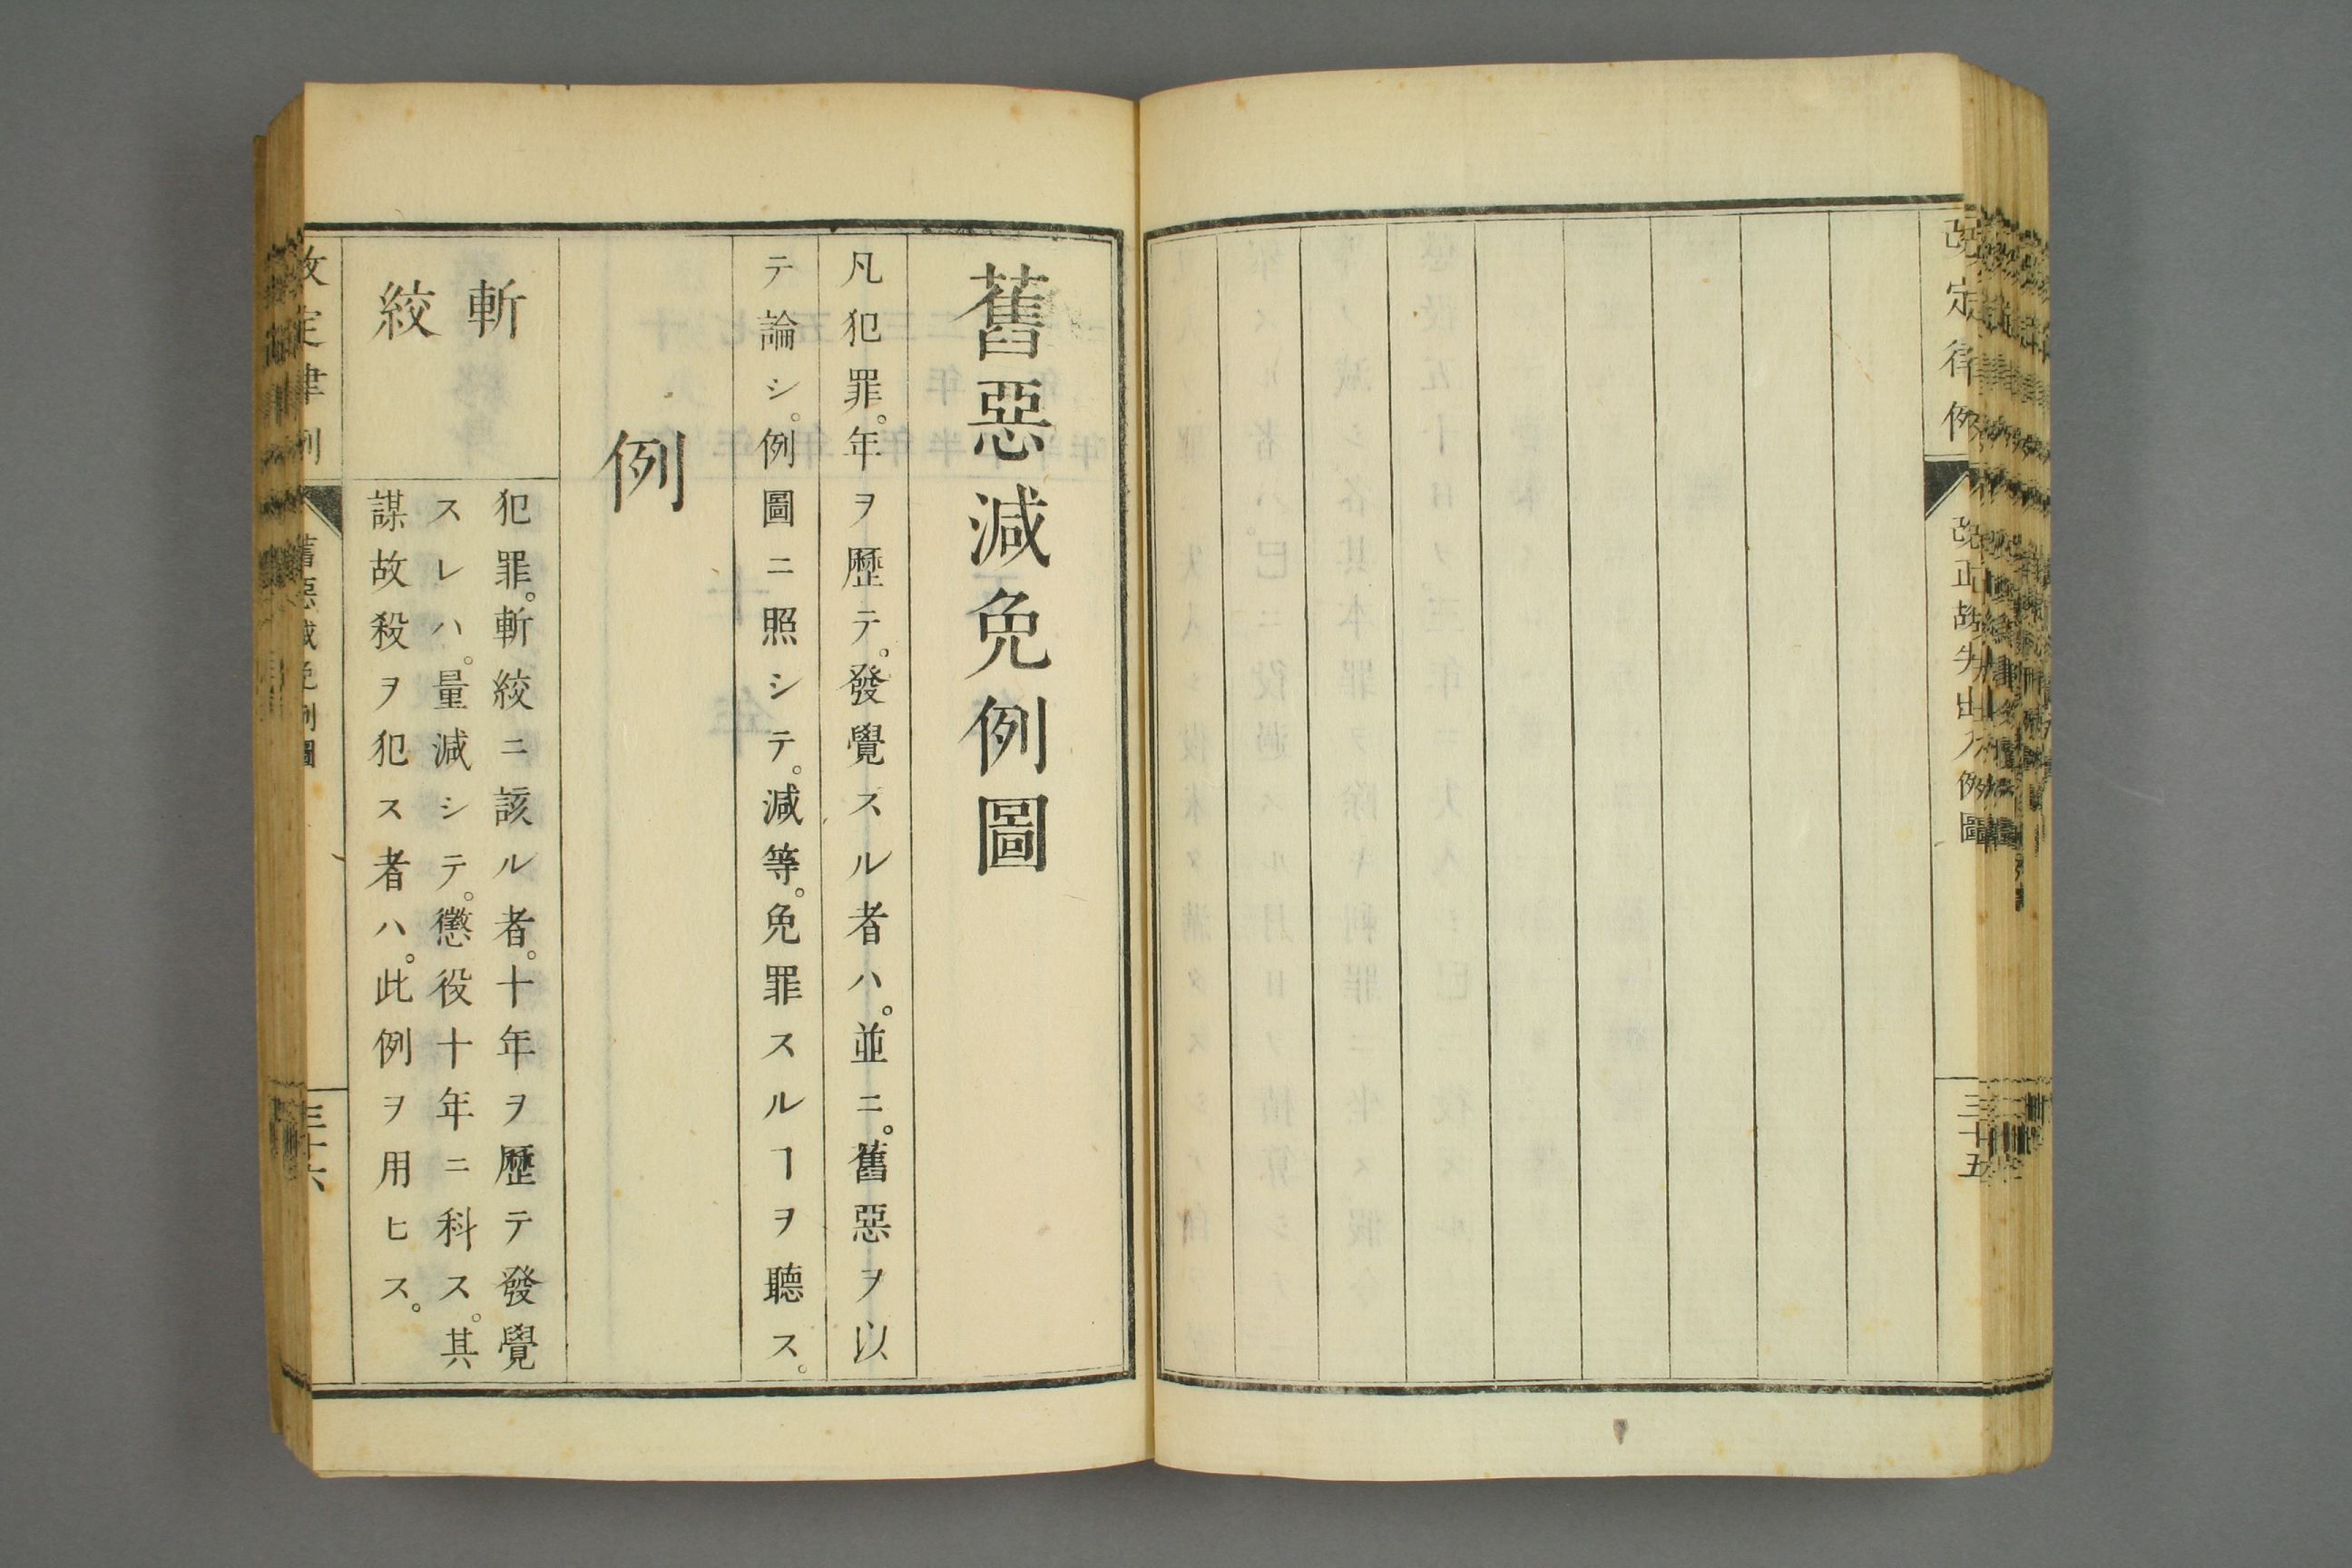 改定律例
改正故失出入例圖
三十五
舊惡減免例圖
凡犯罪。年ヲ歷テ。發覺スル者ハ。並ニ。舊惡ヲ以
テ論シ。例圖ニ照シテ。減等。免罪スルヿヲ聽ス。
例
斬
絞
犯罪。斬絞ニ該ル者。十年ヲ歷テ發覺
スレハ。量減シテ。懲役十年ニ科ス。其
謀故殺ヲ犯ス者ハ。此例ヲ用ヒス。
改定律例
舊惡減免例圖
三十六